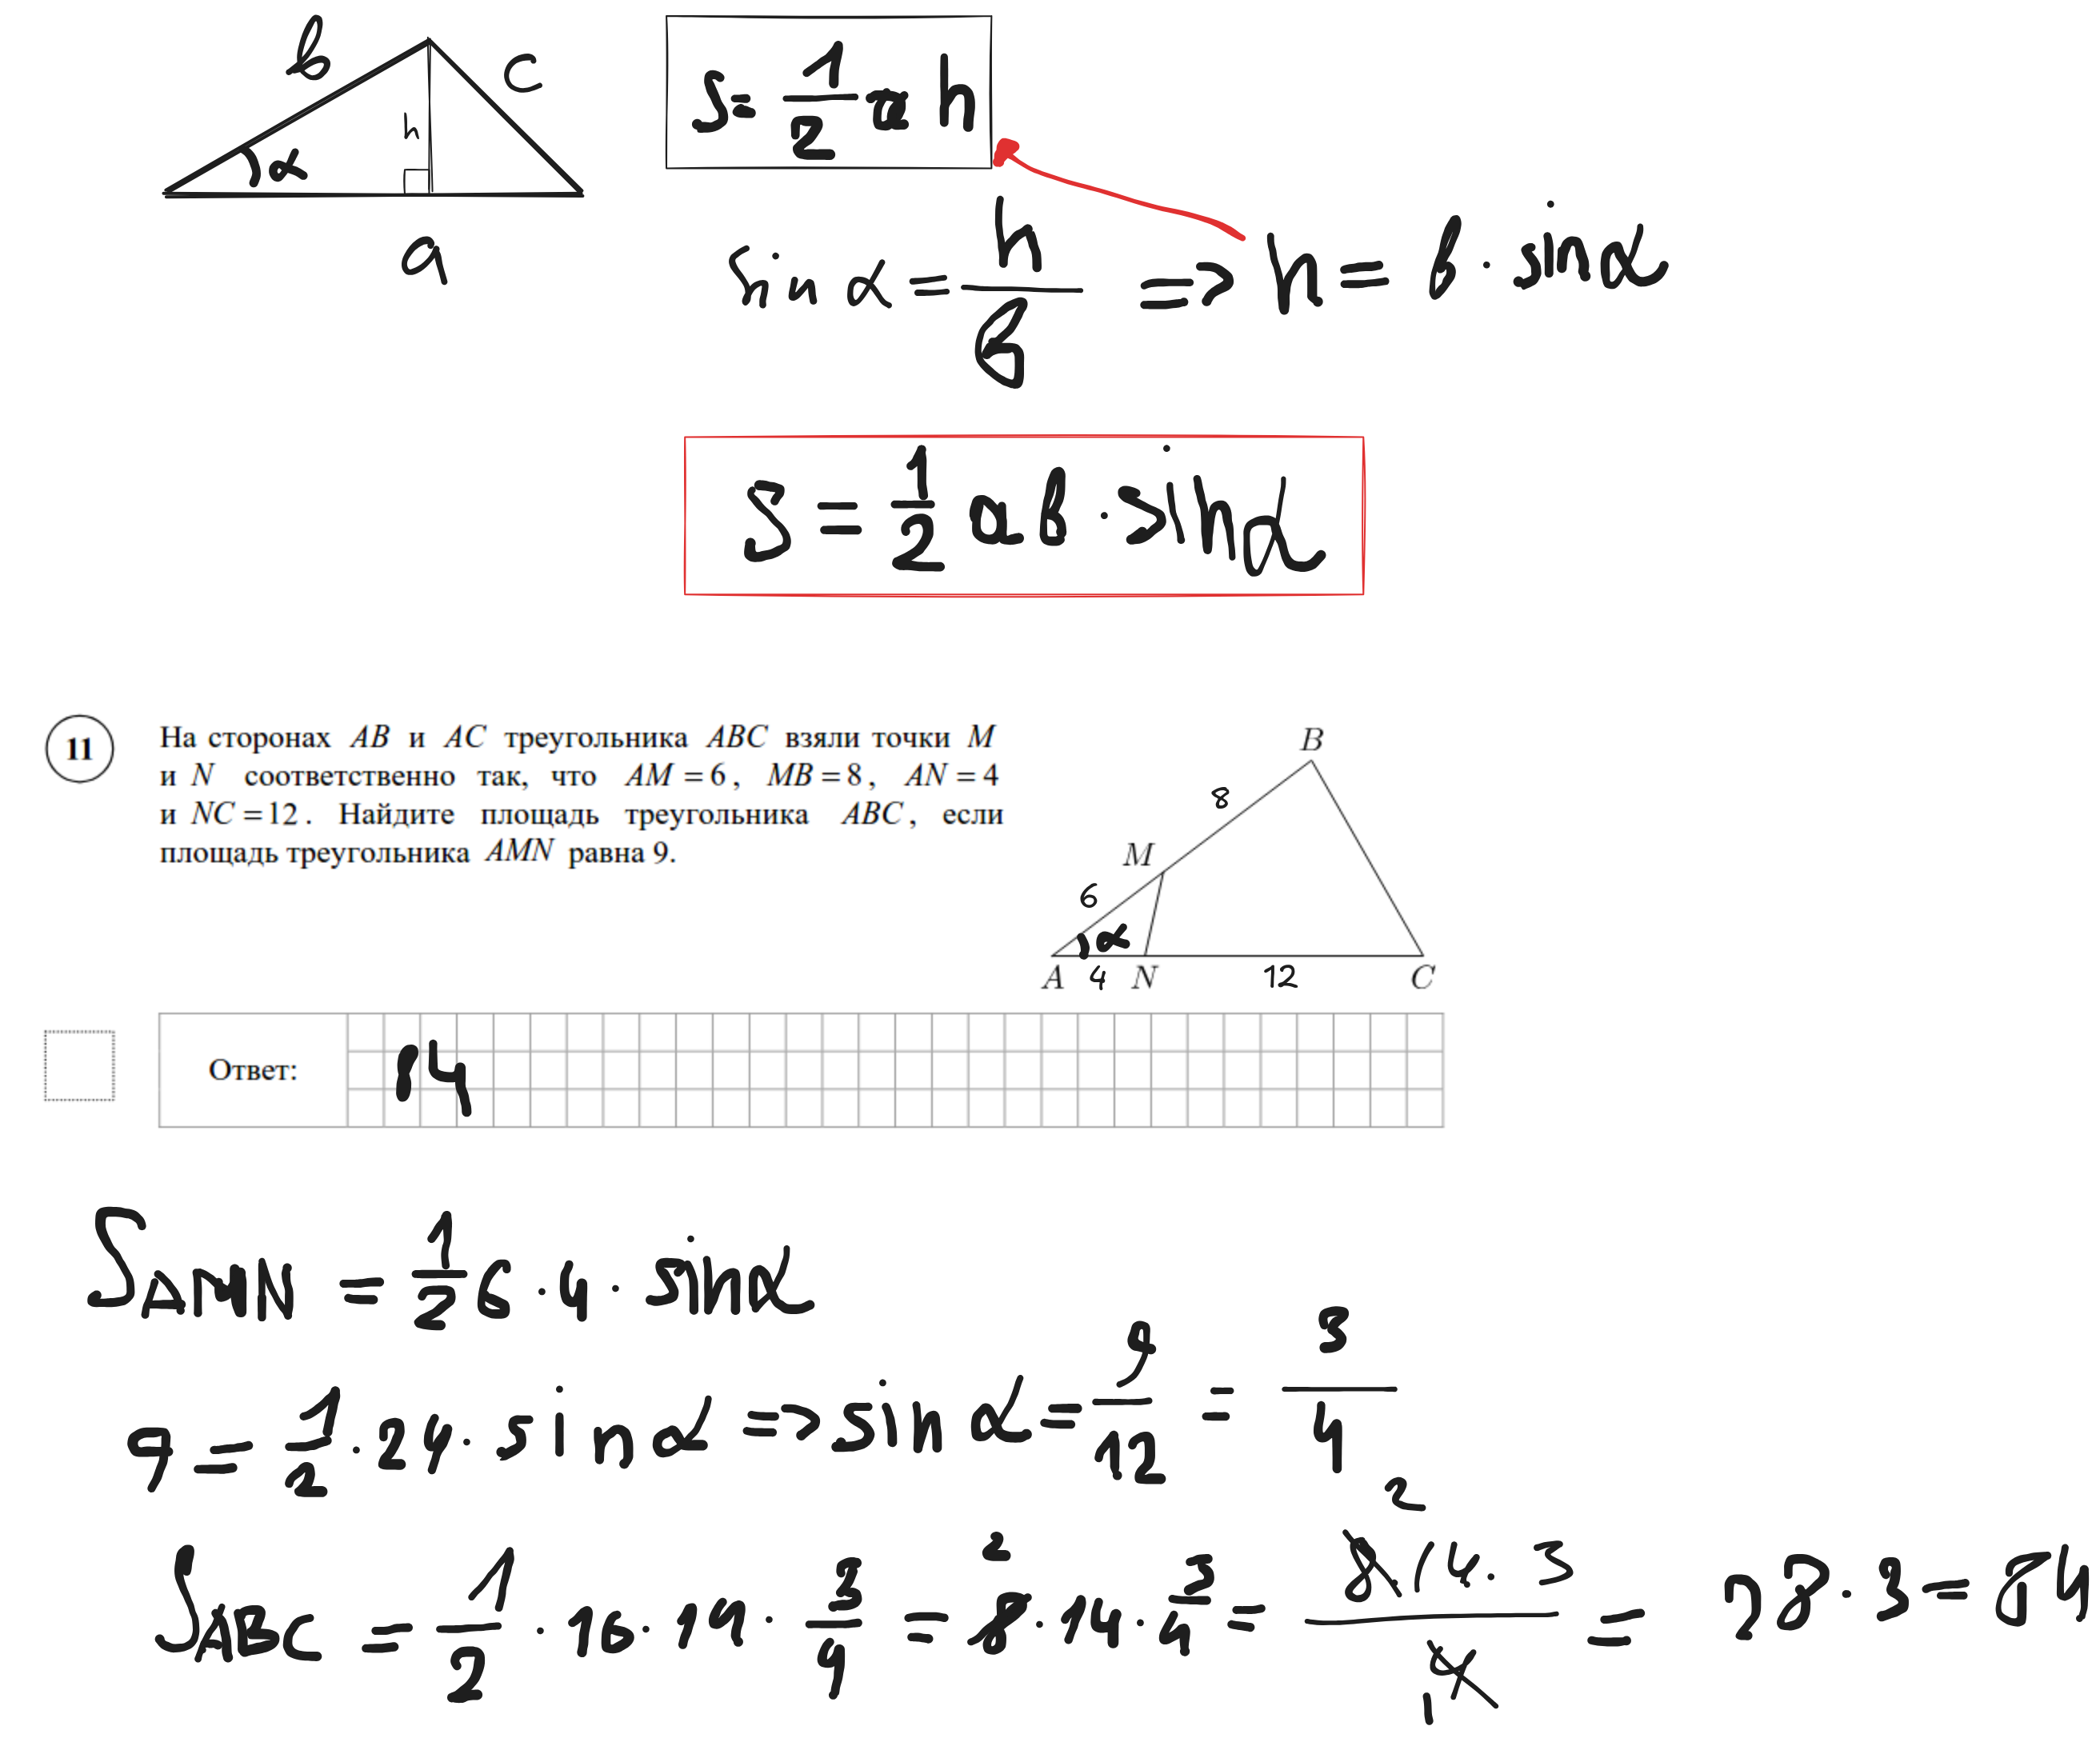 b
c
h
α
a
S = 1/2 a h
sin α = h/b => h = b · sin α
S = 1/2 ab · sin α
11
На сторонах AB и AC треугольника ABC взяли точки M
и N соответственно так, что AM = 6 , MB = 8 , AN = 4
и NC = 12 . Найдите площадь треугольника ABC , если
площадь треугольника AMN равна 9.
B
8
M
6
α
A 4 N 12 C
Ответ: 84
S AMN = 1/2 6 · 4 · sin α
9 = 1/2 · 24 · sin α => sin α = 9/12 = 3/4
S ABC = 1/2 · 16 · 14 · 3/4 = 8 2 · 14 · 3/4 = 8 2 14 · 3 / 4 1 = 28 · 3 = 84